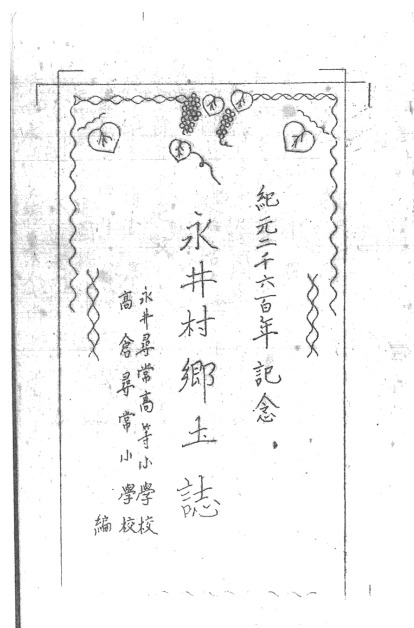 紀元二千六百年記念
永井村郷土誌
永井尋常高等小學校
高倉尋常小學校
編